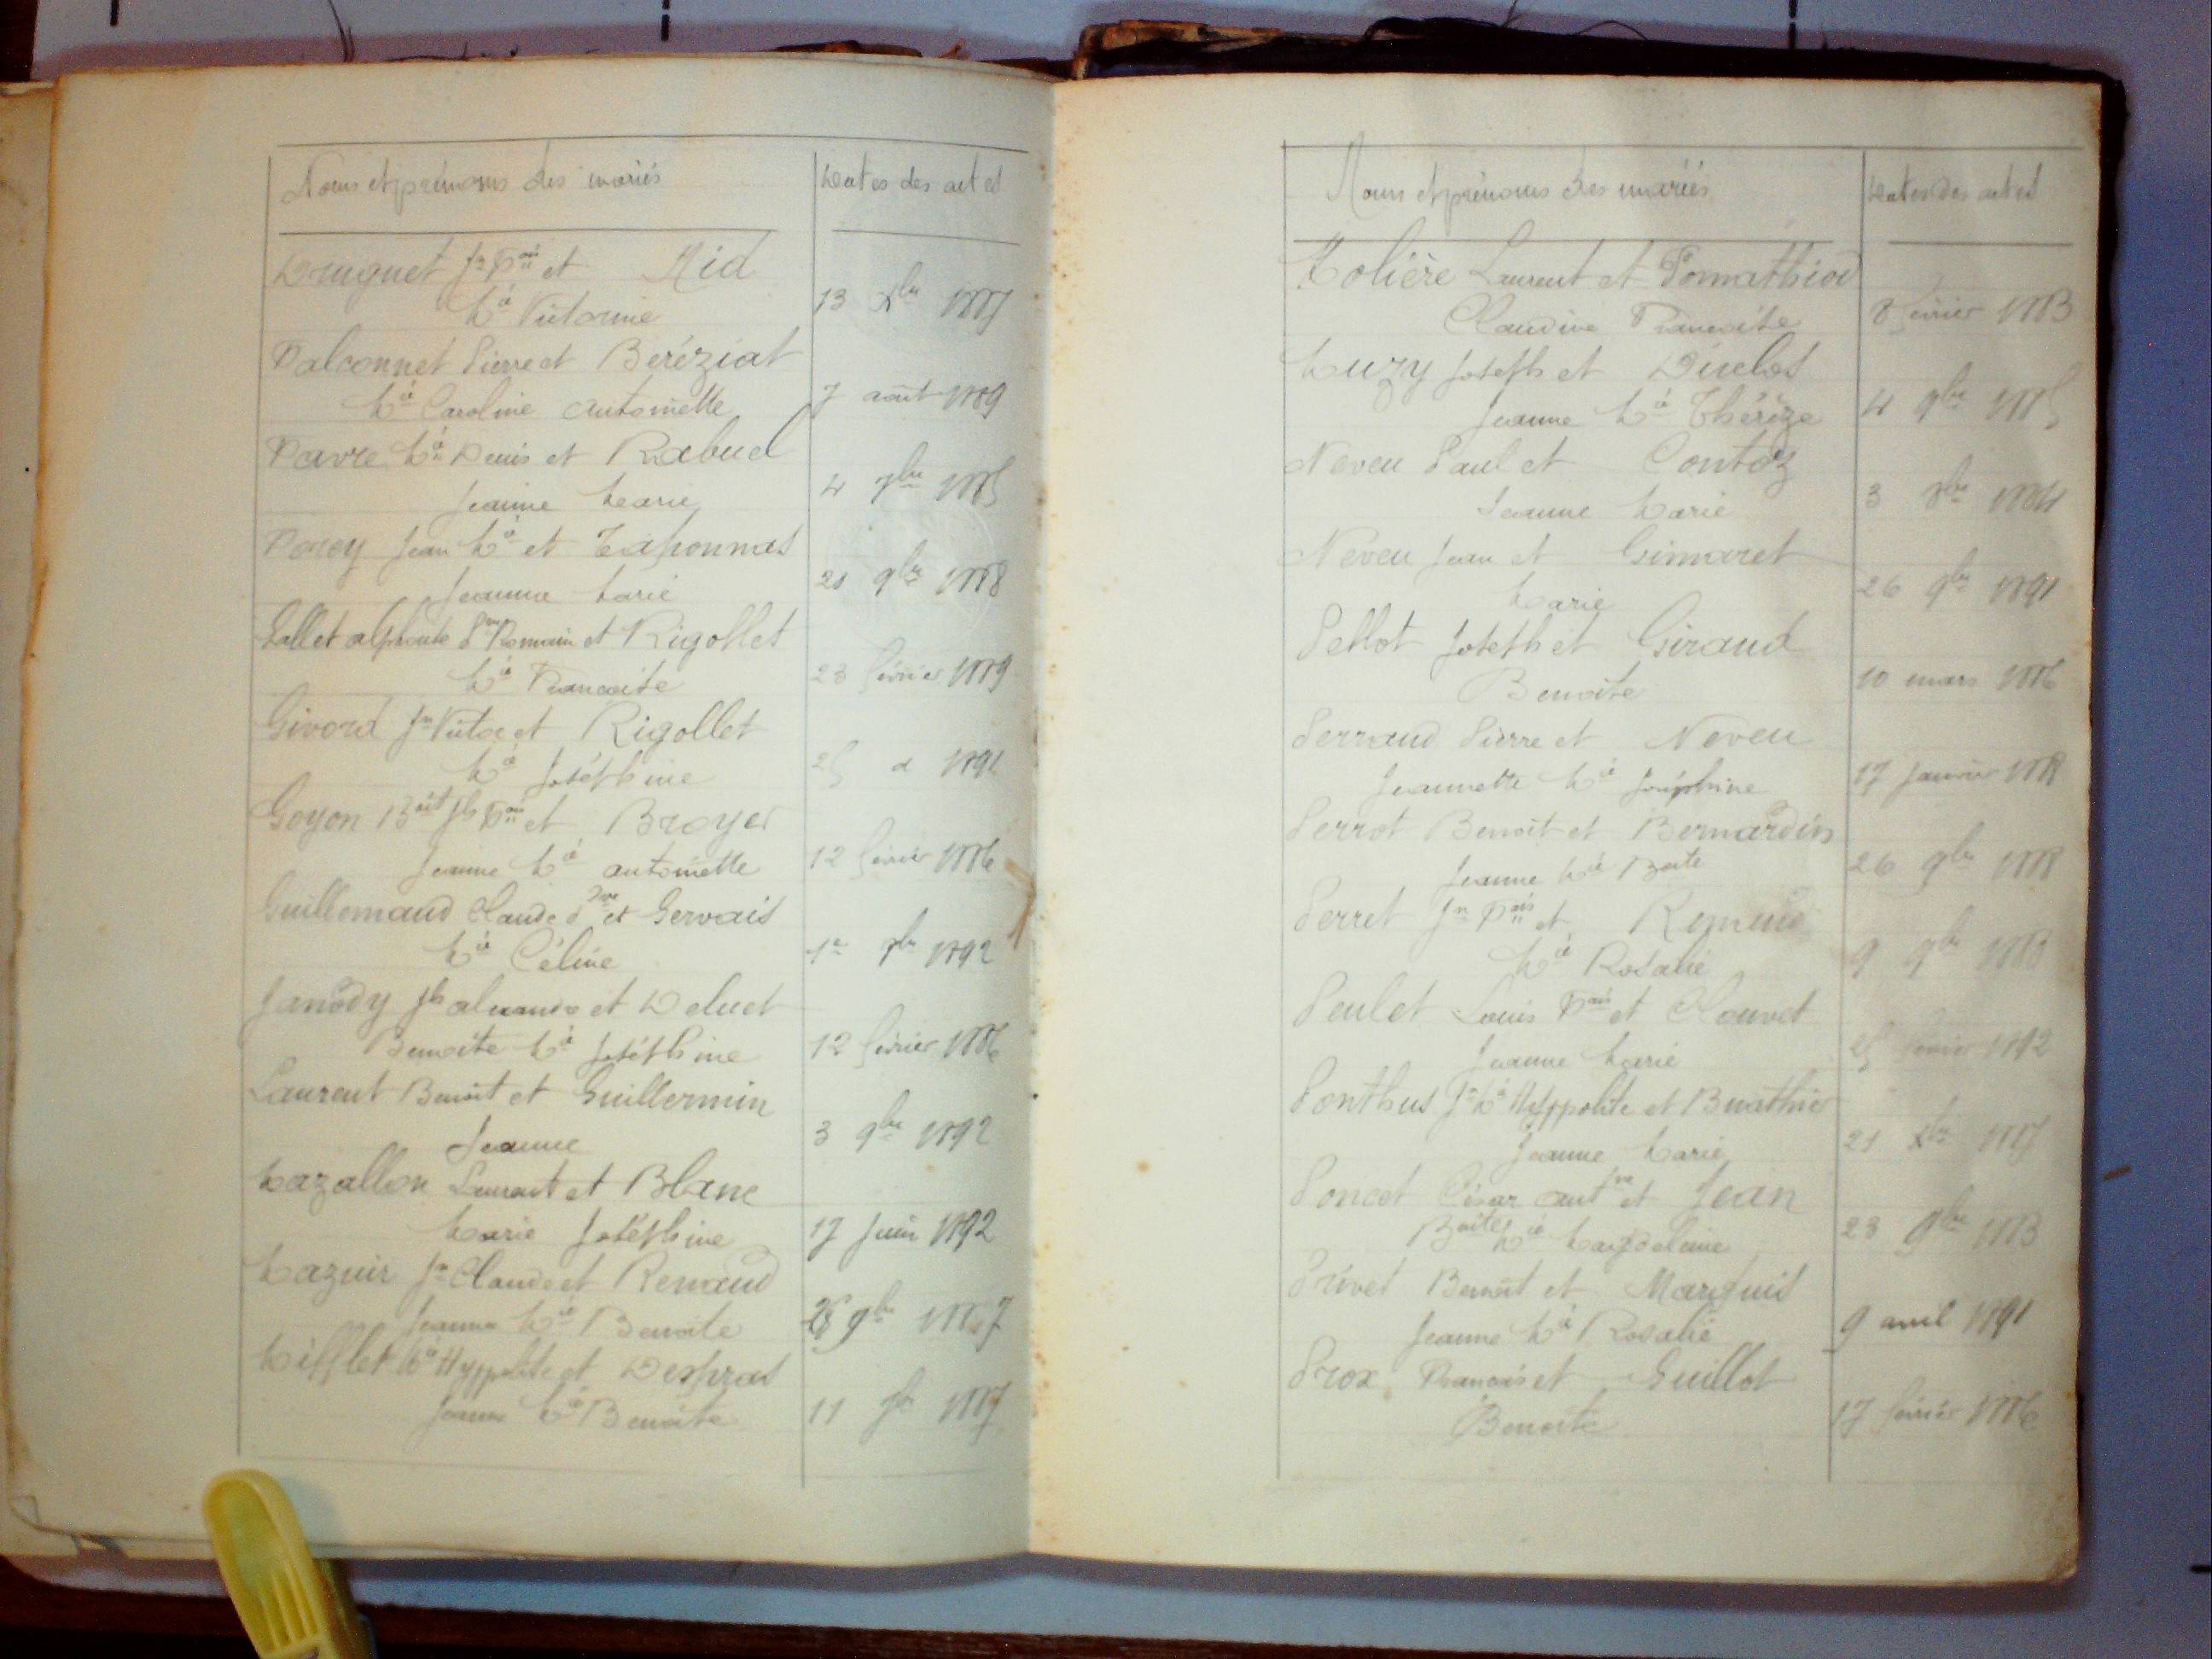 Noms et prénoms des mariés
Dates des actes
Druguet Jn Fois et Nid
Mie Victorine
13 Xbre 1887
Falconnet Pierre et Beréziat
Mie Caroline Antoinette
7 août 1889
Favre Mie Denis et Rabuel
Jeanne Marie
4 7bre 1885
Forey Jean Mie et Taponnas
Jeanne Marie
21 9bre 1888
Gallet Alphonse Romain et Rigollet
Mie Francoise
23 février 1889
Givord Jn Victor et Rigollet
Mie Joséphine
25 d 1892
Goyon Boit Jh Fois et Broyer
Jeanne Mie Antoinette
12 février 1886
Guillemaud Claude et Gervais
Mie Céline
1er 1892
Janody Jh Alexandre et Deluet
Benoite Mie Joséphine
12 février 1886
Laurent Benoit et Guillermin
Jeanne
3 9bre 1892
Mazallon Laurent et Blanc
Marie Joséphine
17 juin 1892
Mazuir Jn Claude et Renaud
Jeanne Mie Benoite
9bre 1887
Mifflet Mie Hyppolite et Despras
Jeanne Mie Benoite
11 1887
Noms et prénoms des mariés
Dates des actes
Molière Laurent et Pomathiod
Claudine Francoise
8 février 1883
Muzy Joseph et Duclos
Jeanne Mie Thérèze
4 9bre 1885
Neveu Paul et Contoz
Jeanne Marie
3 8bre 1884
Neveu Jean et Gimaret
Marie
26 9bre 1891
Pellot Joseph et Giraud
Benoite
10 mars 1886
Perraud Pierre et Neveu
Jeannette Mie Joséphine
17 janvier 1888
Perrot Benoit et Bernardin
Jeanne Mie Boite
26 9bre 1888
Perret Jn Fois et Renaud
Mie Rosalie
9 9bre
Peulet Louis Fois et Clouvet
Jeanne Marie
25 février 1892
Ponthus Jn Mie Hyppolite et Buathier
Jeanne Marie
21 Xbre 1887
Poncet César Ant et Jean
Boite Mie Magdeleine
23 9bre 1883
Privet Benoit et Marquis
Jeanne Mie Rosalie
9 avril 1891
Prox Francois et Guillot
Benoite
17 février 1886